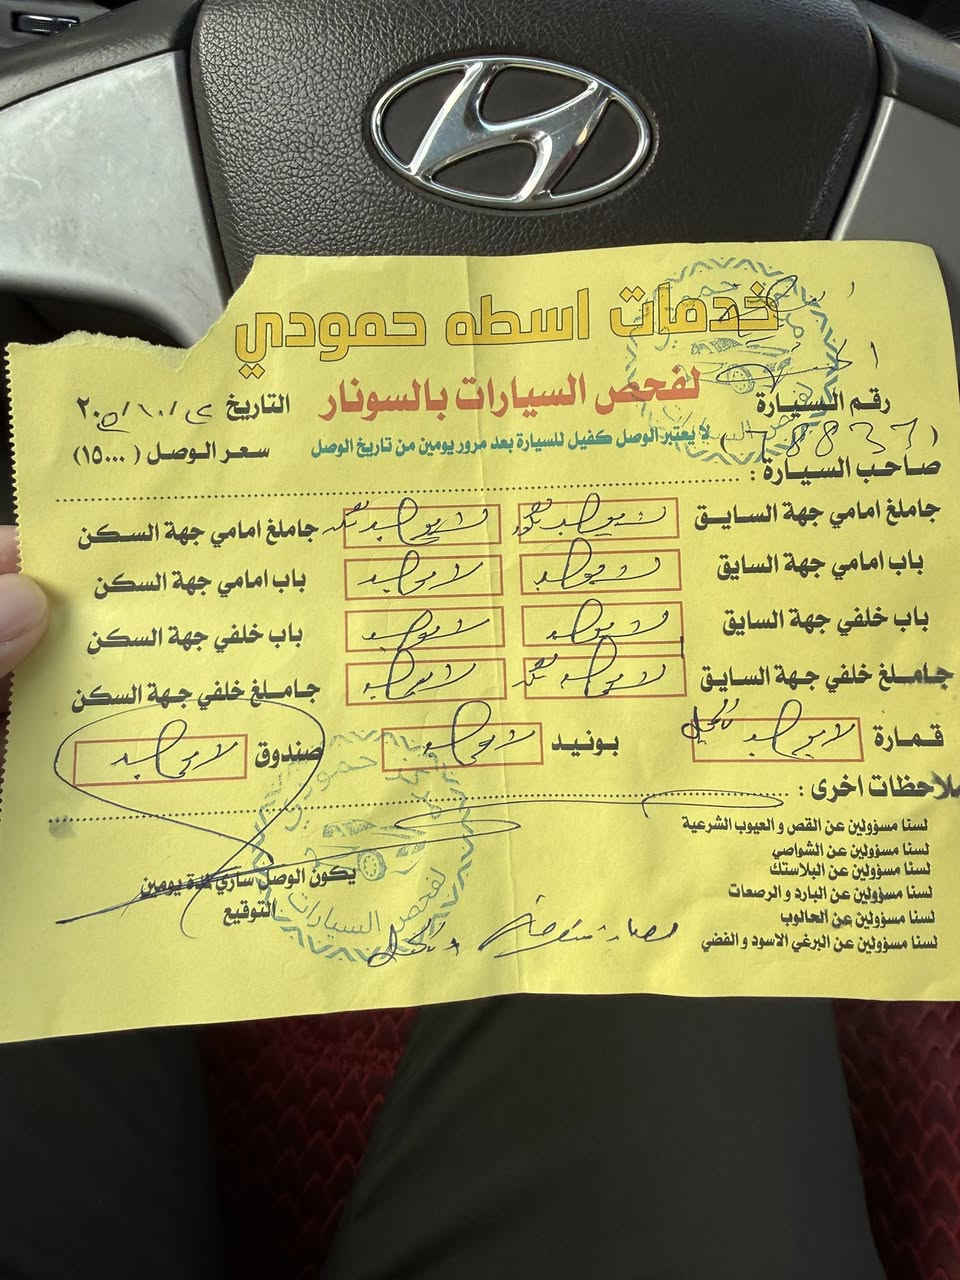 خدمات اسطه حمودي
لفحص السيارات بالسونار
رقم السيارة
التاريخ / ١٠ / ٢٠
لا يعتبر الوصل كفيل للسيارة بعد مرور يومين من تاريخ الوصل
سعر الوصل (١٥٠٠٠)
صاحب السيارة :
جاملغ امامي جهة السايق لا يوجد
جاملغ امامي جهة السكن لا يوجد
باب امامي جهة السايق لا يوجد
باب امامي جهة السكن لا يوجد
باب خلفي جهة السايق لا يوجد
باب خلفي جهة السكن لا يوجد
جاملغ خلفي جهة السايق لا يوجد
جاملغ خلفي جهة السكن لا يوجد
قمارة لا يوجد بونيد لا يوجد صندوق لا يوجد
ملاحظات اخرى :
لسنا مسؤولين عن القص و العيوب الشرعية
لسنا مسؤولين عن الشواصي
لسنا مسؤولين عن البلاستك
لسنا مسؤولين عن البارد و الرصعات
لسنا مسؤولين عن الحالوب
لسنا مسؤولين عن البرغي الاسود و الفضي
يكون الوصل ساري لمدة يومين
التوقيع
حمودي
لفحص السيارات